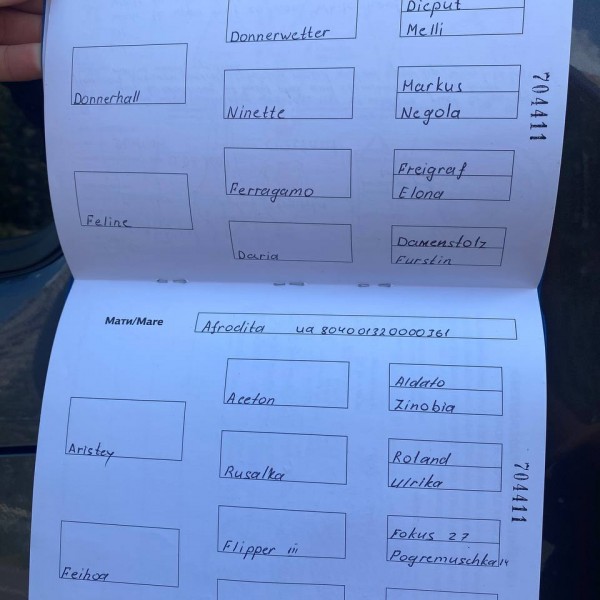 Dicput
Donnerwetter
Melli
Donnerhall
Markus
Ninette
Negola
704411
Freigraf
Ferragamo
Elona
Feline
Damenstolz
Daria
Furstin
Мати/Mare
Afrodita ua 804001320000361
Aldato
Aceton
Zinobia
Aristey
Roland
Rusalka
Ulrika
704411
Fokus 27
Flipper iii
Pogremuschka 14
Feihoa